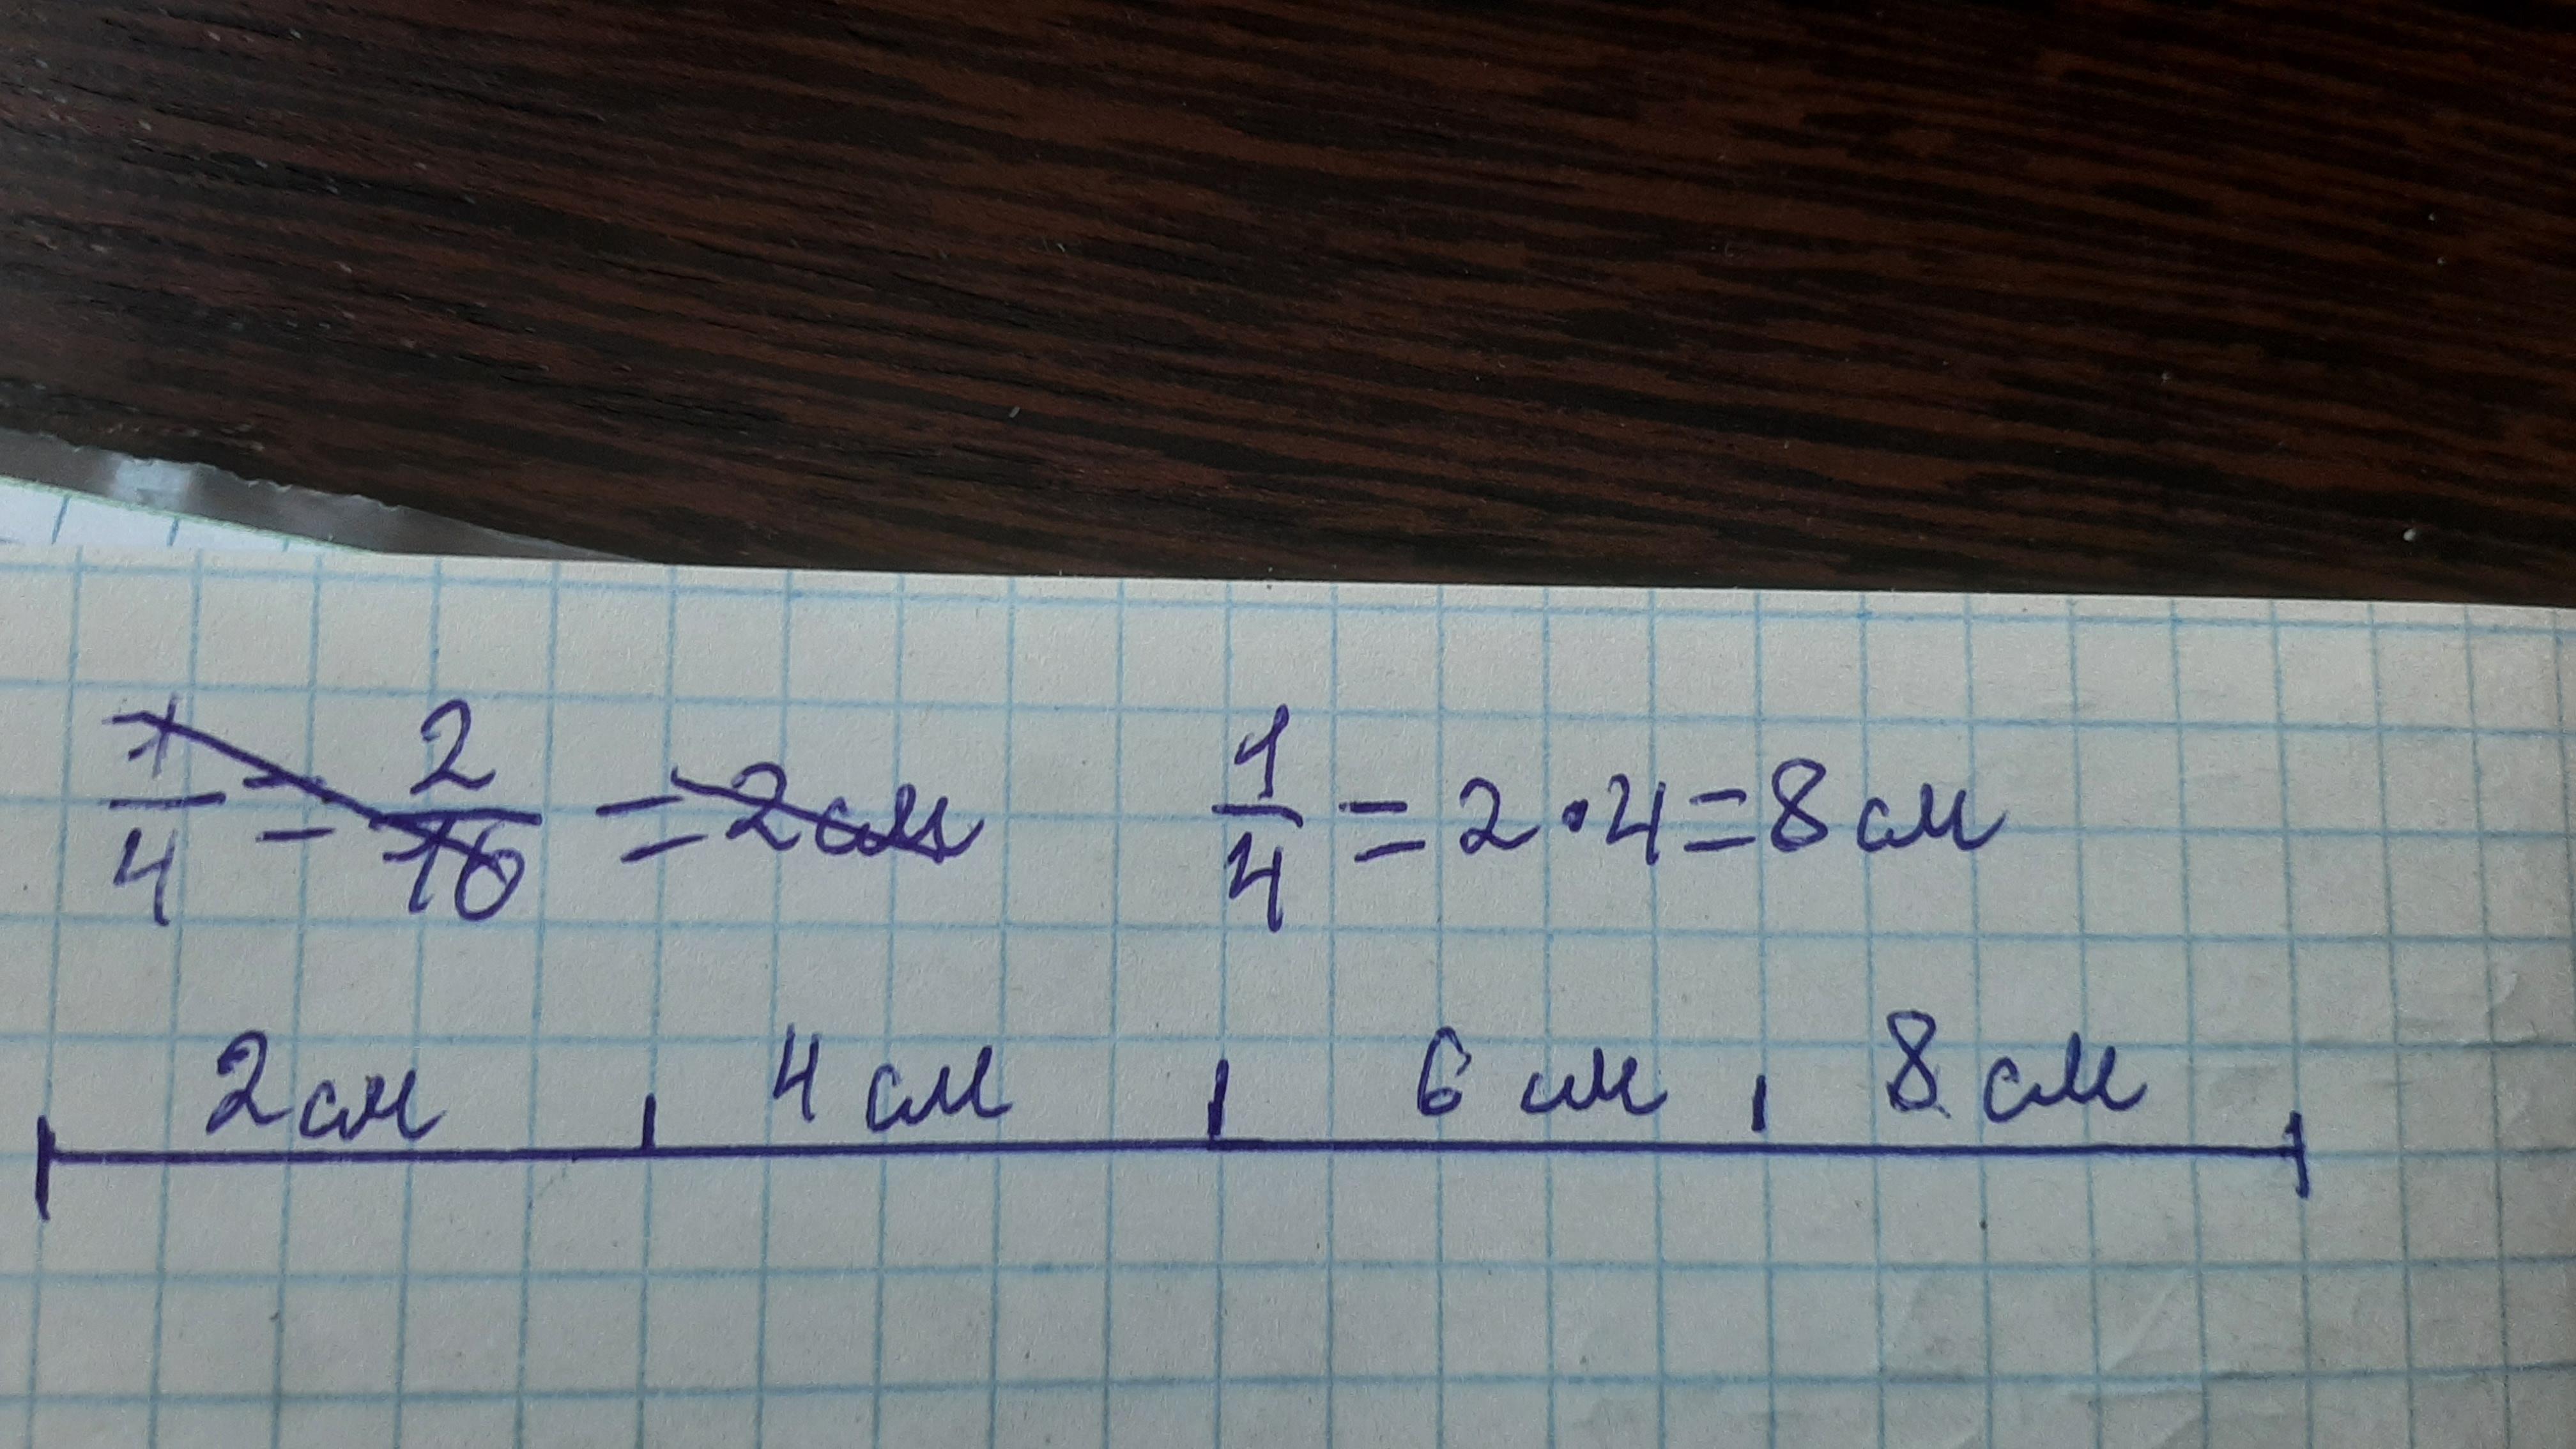 1/4 = 2/16 = 2см 1/4 = 2·4=8 см
2см 4 см 6 см 8 см